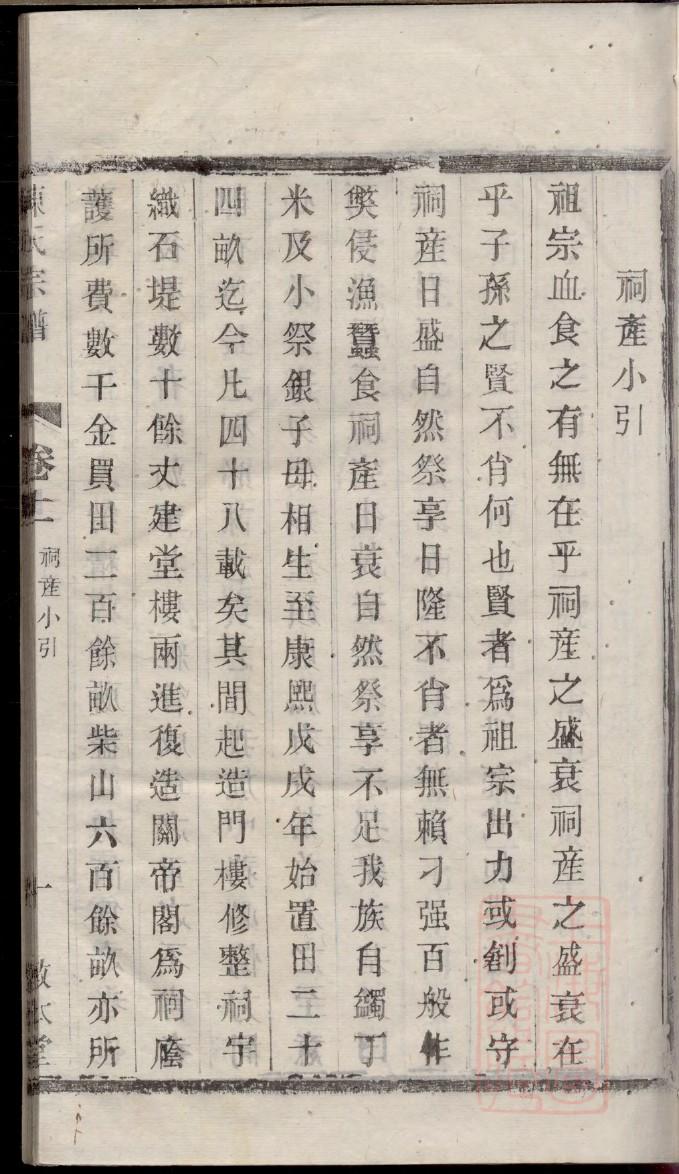 祠產小引
祖宗血食之有無在乎祠產之盛衰祠產之盛衰在
乎子孫之賢不肖何也賢者為祖宗出力或創或守
祠產日盛自然祭享日隆不肖者無賴刁强百般作
獘侵漁蠶食祠產日衰自然祭享不足我族自蠲丁
米及小祭銀子毋相生至康熙戊戌年始置田二十
四畝迄今凡四十八載矣其間起造門樓修整祠宇
織石堤數十餘丈建堂樓兩進復造關帝閣為祠廕
護所費數千金買田二百餘畝柴山六百餘畝亦所
陳氏宗譜 卷十一 祠產小引 一 敦本堂